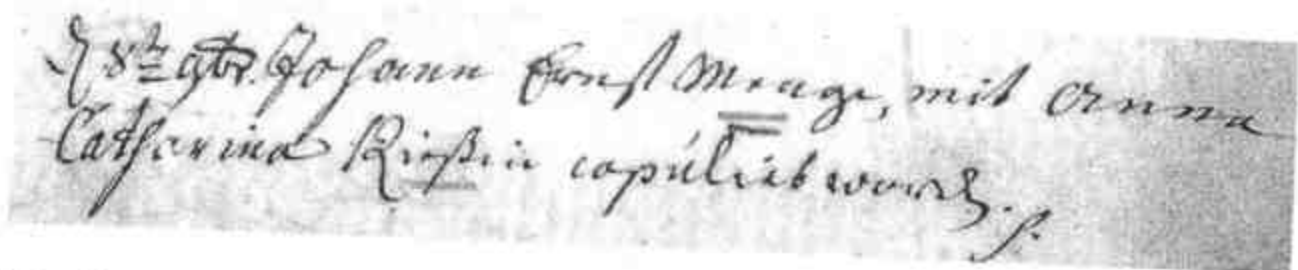 d 8t 9br. Johann Ernst Menge, mit Anna
Catharina Rießin copulirt word.